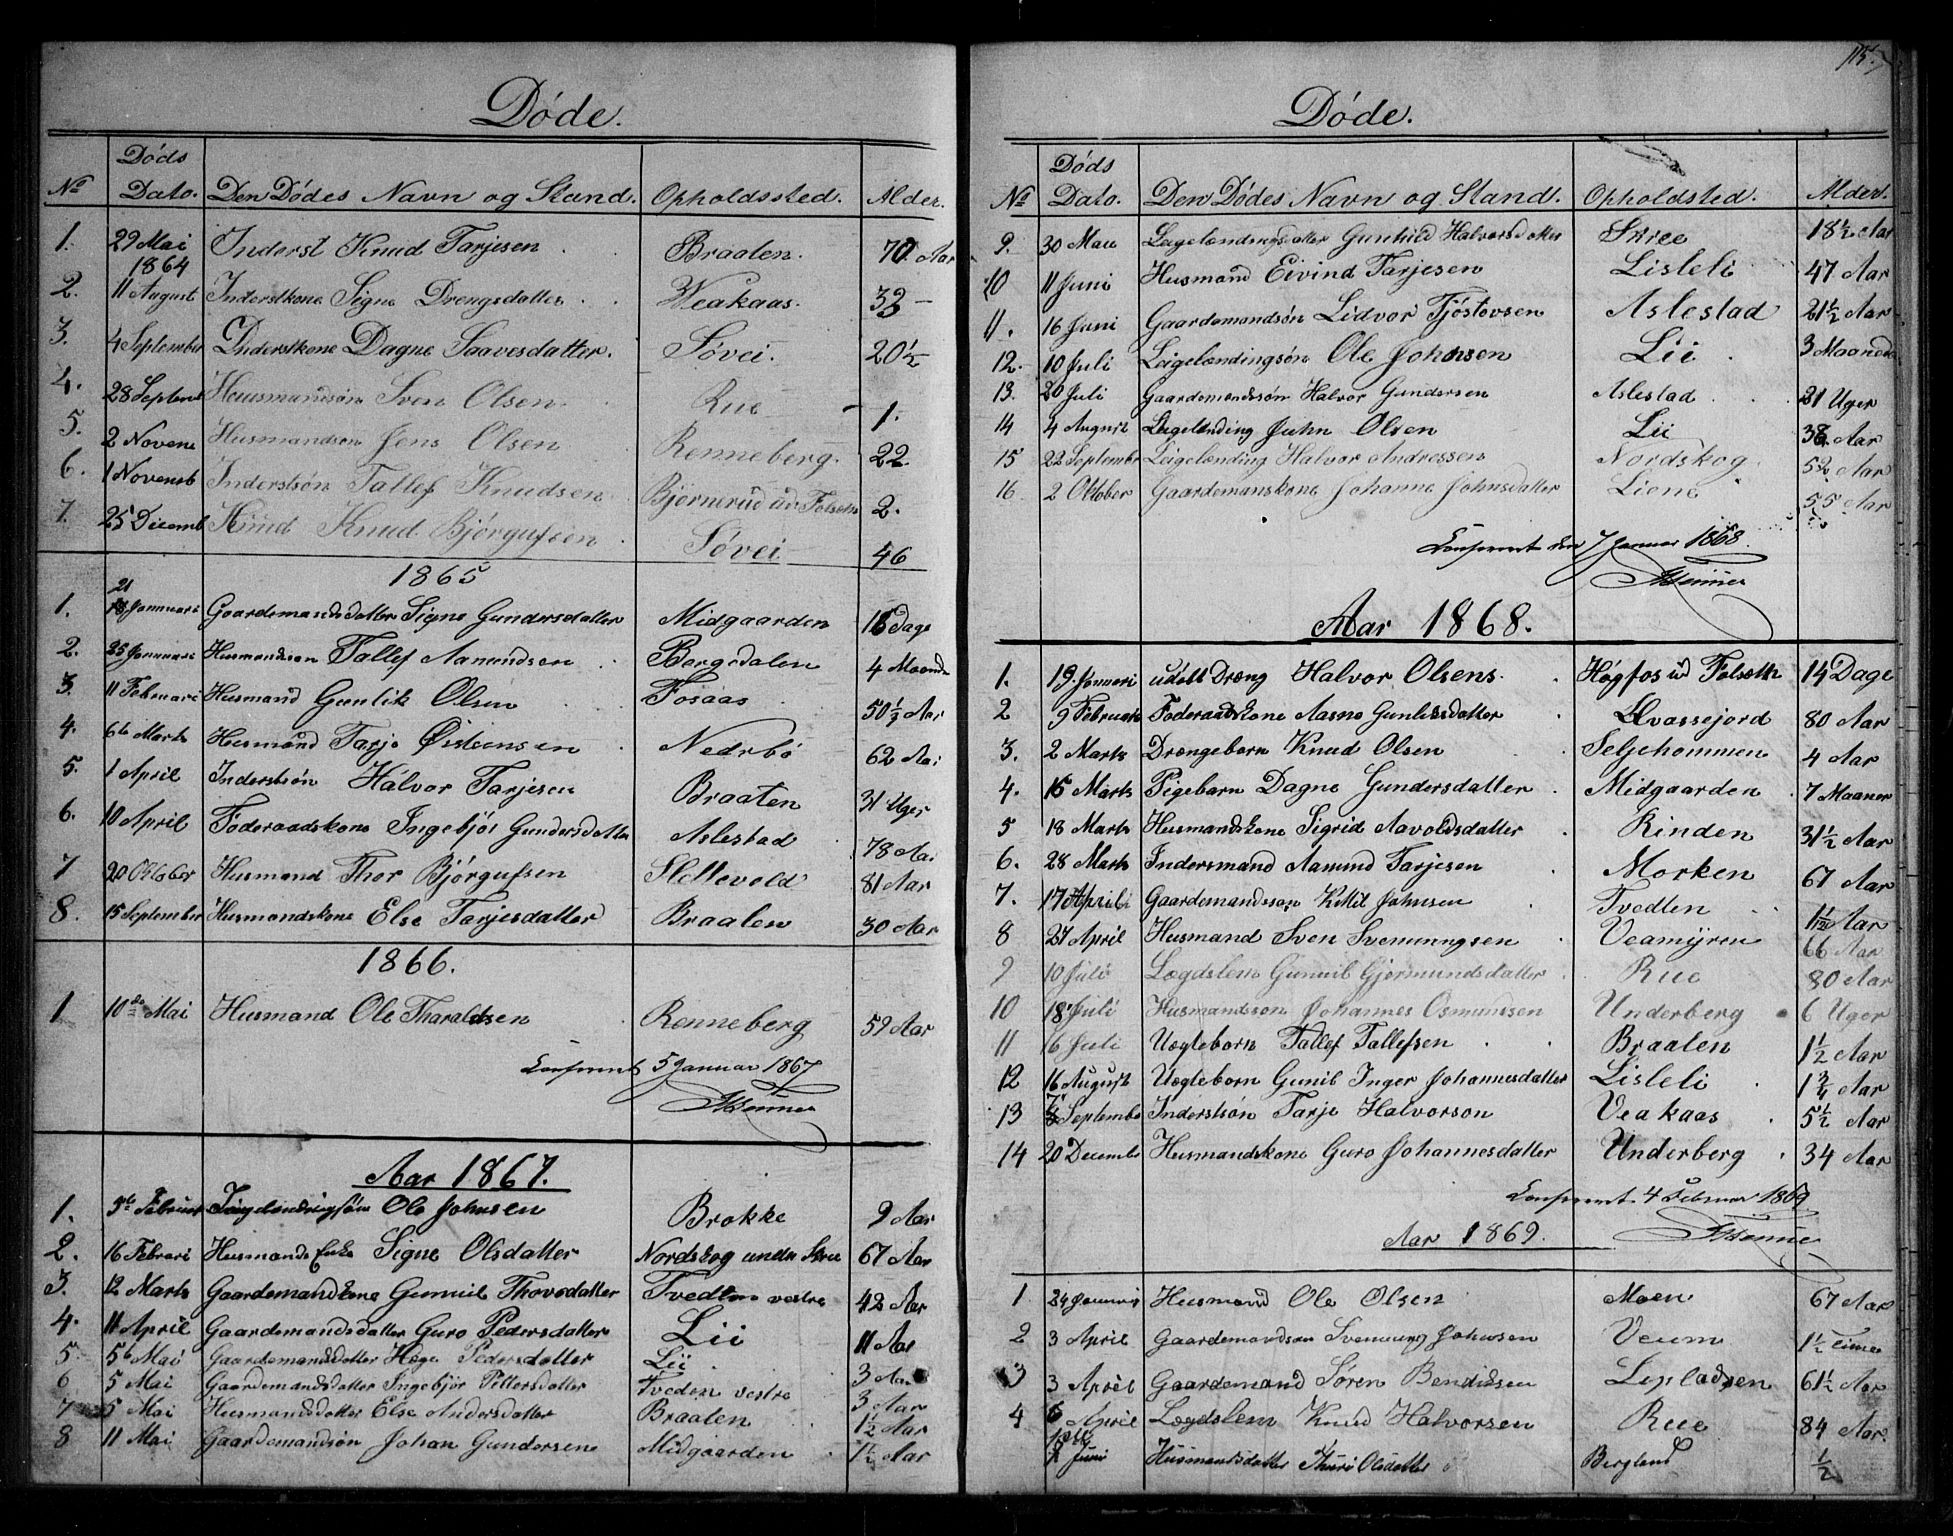 Døde.
Nº Døds Dato. Den Dødes Navn og Stand. Opholdssted. Alder.
1. 29 Mai 1864 Inderst Knud Tarjesen Braaten. 70 Aar
2. 11 August Inderstkone Signe Drengsdatter Veakaas. 33 —
3. 4 September Inderstkone Dagne Saavesdatter. Søvei. 20½
4. 28 Septemb Huusmandsøn Sven Olsen Rue — 1.
5. 2 Novem Husmandsøn Jens Olsen Renneberg. 22
6. 1 Novemb Inderstsøn Tallef Knudsen Bjørnerud ud Folseth 2.
7. 25 Decemb Knud Bjørgufsen Søvei 46
1865
1. 21 Januari Gaardemandsdatter Signe Gundersdatter Midgaarden 16 Dage
2. 25 Januari Husmandsøn Tallef Aamundsen Bergsdalen 4 Maaned
3. 11 Februari Husmand Gunlik Olsen Fosaas 50½ Aar
4. 6te Marts Husmand Tarje Øisteinsen Nedrbø 62 Aar
5. 1 April Inderstsøn Halvor Tarjesen Braaten 31 Uger
6. 10 April Føderaadskone Ingebjør Gundersdatter Aslestad 78 Aar
7 20 Oktober Husmand Thor Bjørgufsen Slettevold 81 Aar
8. 15 September Husmandskone Else Tarjesdatter Braaten 30 Aar
1866.
1 10de Mai Husmand Ole Tharaldsen Renneberg 59 Aar
Conferent 5 Januar 1867
Aar 1867.
1. Februar Ole Johnsen Brokke 9 Aar
2. 16 Febrari Husmands Enke Signe Olsdatter Nordskog under Skree 67 Aar
3. 12 Marts Gaardemandskone Gunuil Thovsdatter Tvedten vestre 42 Aar
4. 11 April Gaardemandsdatter Guro Pedersdatter Lii 11 Aar
5. 5te Mai Gaardemandsdatter Hæge Pedersdatter Lii 3 Aar
6 5 Mai Gaardemandsdatter Ingebjør Pittersdatter Tveden vestre 3 Aar
7 5 Mai Husmandsdatter Else Andersdatter Braaten 1½ Aar
8 11 Mai Gaardemandsøn Johan Gundersen Midgaarden 1½ Aar
115.
Døde.
Nº Døds Dato. Den Dødes Navn og Stand. Opholdsted. Alder.
9. 30 Mai Leigelændingsdatter Gunhild Halvorsdatter Skree 18½ Aar
10 11 Juni Husmand Eivind Tarjesen Lisleli 47 Aar
11. 16 Juni Gaardemandsøn Lidvor Tjøstovsen Aslestad 21½ Aar
12. 10 Juli Leigelændingsøn Ole Johnsen Lii 3 Maaneder
13. 20 Juli Gaardemandsøn Halvor Gundersen Aslestad 21 Uger
14 4 August Leigelænding Juhn Olsen Lii 38 Aar
15 22 September Leigelænding Halvor Andressen Nordskog 52 Aar
16. 2 Oktober Gaardemanskone Johanne Johnsdatter Liene 55 Aar
Conferent den 7 Januar 1868.
Aar 1868.
1. 19 Januari udøbt Dræng Halvor Olsens Høgfos ud Folseth 14 Dage
2 9 Februar Føderaadskone Aasne Gunleksdatter Kvassejord 80 Aar
3. 2 Marts Drængebarn Knud Olsen Seljehommen 4 Aar
4. 15 Marts Pigebarn Dagne Gundersdatter Midgaarden 7 Maaner
5 18 Marts Husmandskone Sigrid Aavoldsdatter Rinden 31½ Aar
6. 28 Marts Indersmand Aamund Tarjesen Morken 67 Aar
7. 17 April Gaardemandssøn Kittil Johnsen Tvedten Aar
8 27 April Husmand Sven Svenningsen Veamyren 66 Aar
9 10 Juli Lægdslem Gunuil Gjermundsdatter Rue 80 Aar
10 18 Juli Husmandssøn Johannes Osmundsen Underberg 6 Uger
11 16 Juli Uægteborn Tallef Tallefsen Braaten 1½ Aar
12 16 August Uægteborn Gunil Inger Johannesdatter Lisleli 1¾ Aar
13 Septembe Inderstsøn Tarje Halvorson Veakaas 5½ Aar
14 20 Decembe Husmandskone Guro Johannesdatter Underberg 34 Aar
Conferent 4 Februar 1869
Aar 1869.
1 24 Januari Husmand Ole Olsen Moen 67 Aar
2 3 April Gaardemandsøn Svenning Johnsen Veum 1½ Time
3 3 April Gaardemand Søren Bendiksen 61½ Aar
4 April Lægdslem Knud Halvorsen Rue 84 Aar.
Juni Husmansdatter Thuri Olsdatter Bergland ½